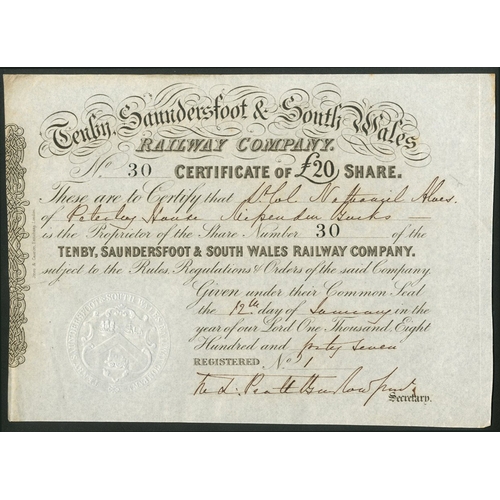 Tenby, Saundersfoot & South Wales
RAILWAY COMPANY.
No. 30 CERTIFICATE OF £20 SHARE.
These are to Certify that Lt Col Nathaniel Alves
of Peterley House Missenden Bucks
is the Proprietor of the Share Number 30 of the
TENBY, SAUNDERSFOOT & SOUTH WALES RAILWAY COMPANY.
subject to the Rules, Regulations & Orders of the said Company
Given under their Common Seal
the 12th day of January in the
year of our Lord One Thousand Eight
Hundred and forty seven
REGISTERED No. 1
Secretary.